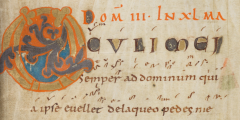 DOM III IN XL MA
OCVLI MEI
Semper ad dominum qui
a ipse euellet delaqueo pedes me